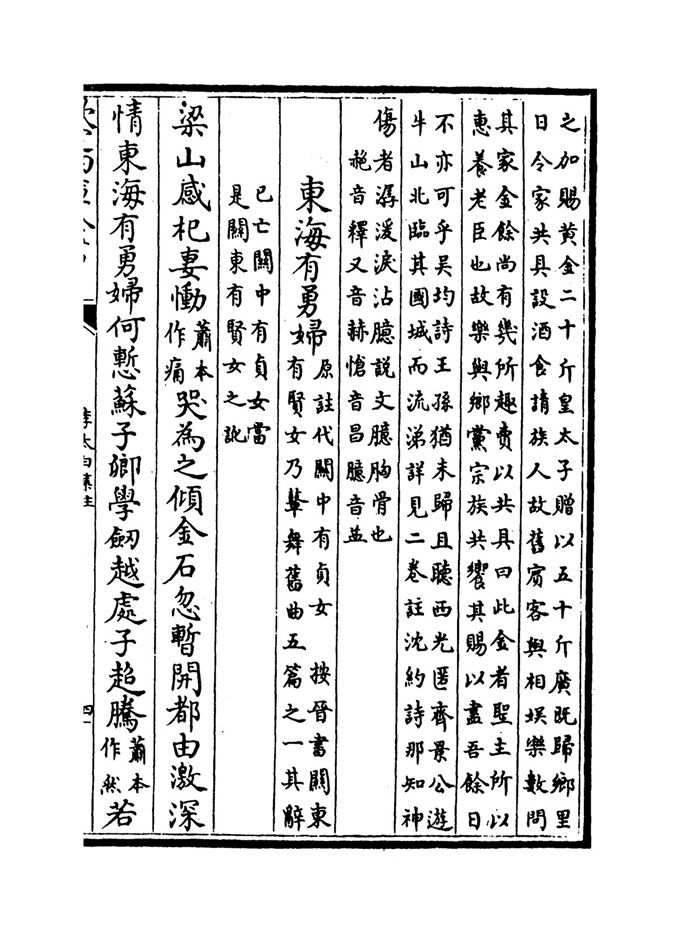 之加賜黃金二十斤皇太子贈以五十斤廣既歸鄉里
日令家共具設酒食請族人故舊賓客與相娛樂數問
其家金餘尚有幾所趣賣以共具曰此金者聖主所以
惠養老臣也故樂與鄉黨宗族共饗其賜以盡吾餘日
不亦可乎吳均詩王孫猶未歸且聽西光匿齊景公遊
牛山北臨其國城而流涕詳見二卷註沈約詩那知神
傷者潺湲淚沾臆説文臆胸骨也
赩音釋又音赫愴音昌臆音益
東海有勇婦
原註代關中有貞女 按晉書關東
有賢女乃鞞舞舊曲五篇之一其辭
已亡關中有貞女當
是關東有賢女之訛
梁山感杞妻慟蕭本作痛哭為之傾金石忽暫開都由激深
情東海有勇婦何慙蘇子卿學劒越處子超騰蕭本作然若
李太白集注